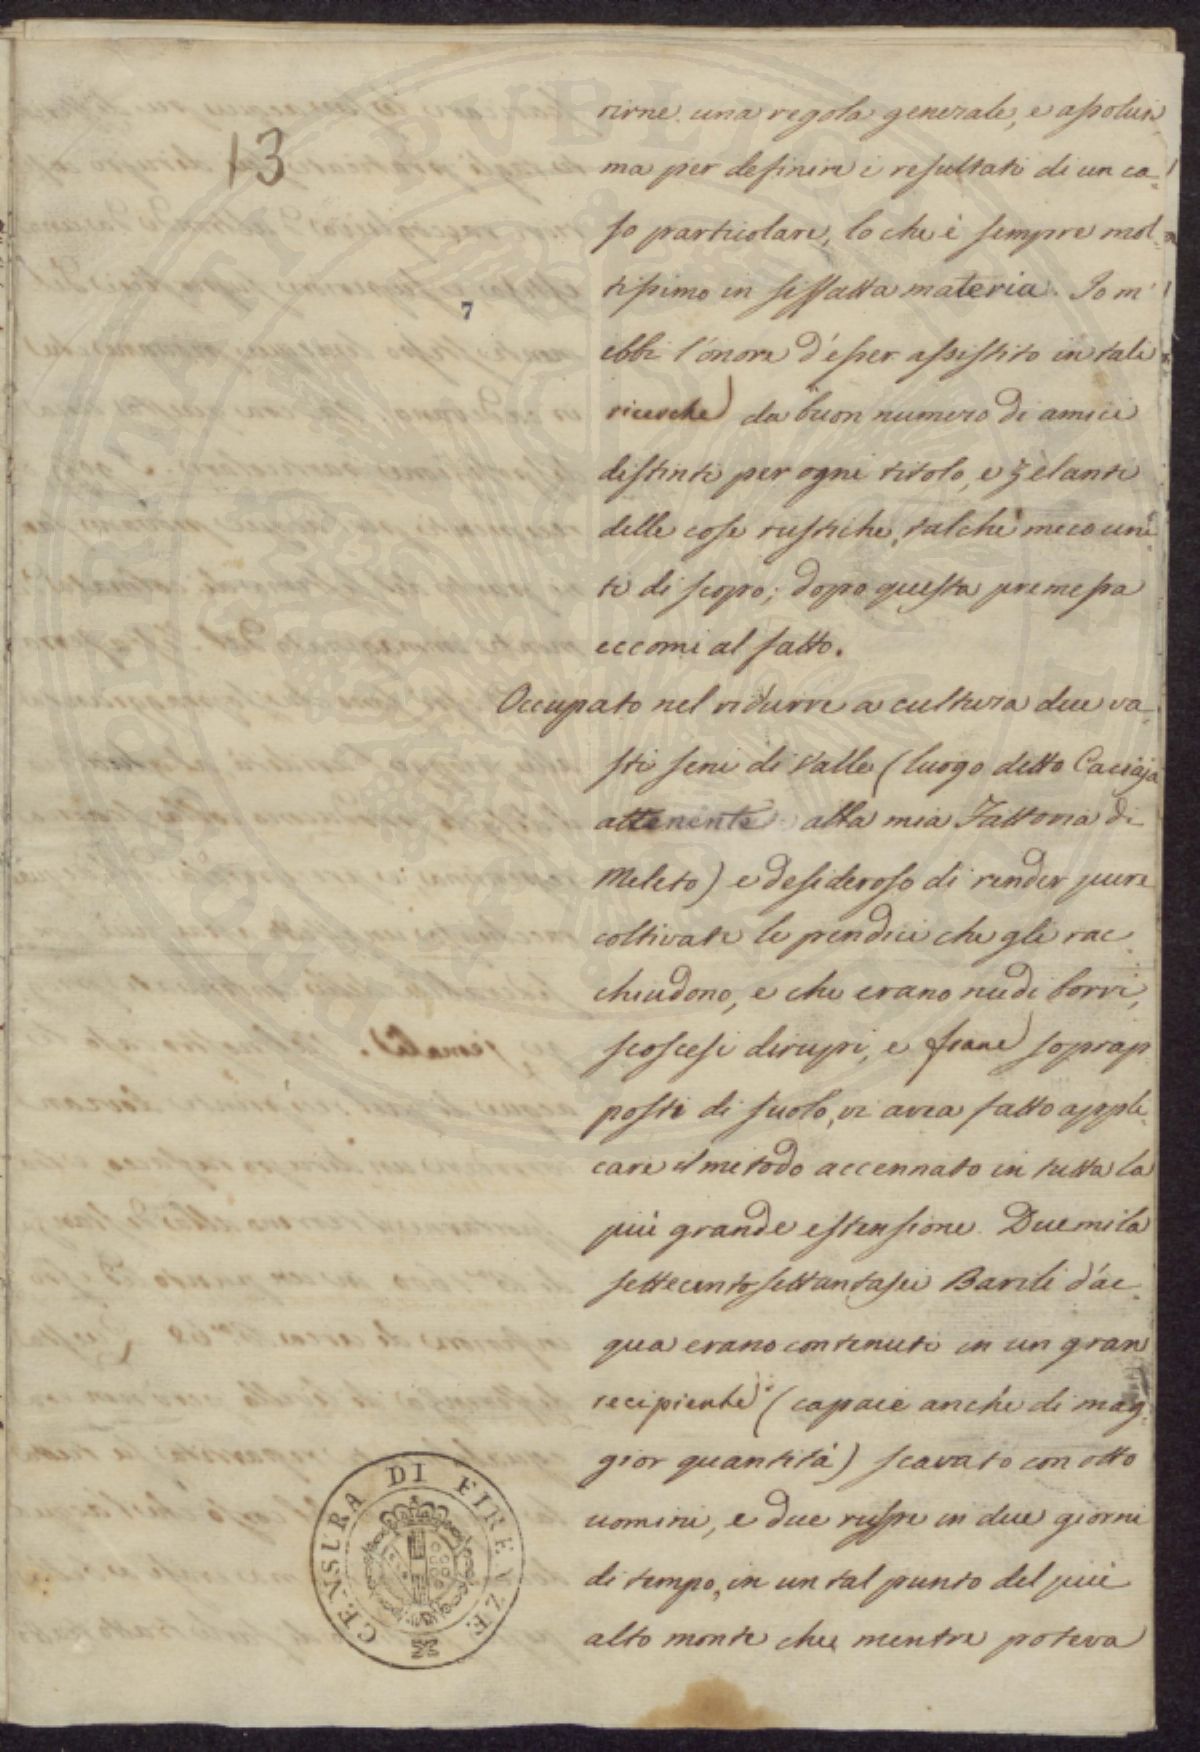 13
7
rirne una regola generale, e assoluti
ma per definire i resultati di un ca
so particolare, lo che è sempre mol
tissimo in siffatta materia. Io m'
ebbi l'onore d'esser assistito in tali
ricerche da buon numero di amici
distinti per ogni titolo, e zelanti
delle cose rustiche, talchè meco uni
ti di scopo; dopo questa premessa
eccomi al fatto.
Occupato nel ridurre a cultura due va
sti seni di Valle (luogo detto Caciaja
attenente alla mia Fattoria di
Meleto) e desideroso di render pure
coltivate le pendici che gli rac
chiudono, e che erano nudi borri,
scoscesi dirupi, e frane soprap
posti di suolo, vi avea fatto appli
care il metodo accennato in tutta la
più grande estensione. Duemila
settecento settantasei Barili d'ac
qua erano contenuti in un gran
recipiente (capace anche di mag
gior quantità) scavato con otto
uomini, e due ruspe in due giorni
di tempo, in un tal punto del più
alto monte che mentre poteva
CENSURA DI FIRENZE